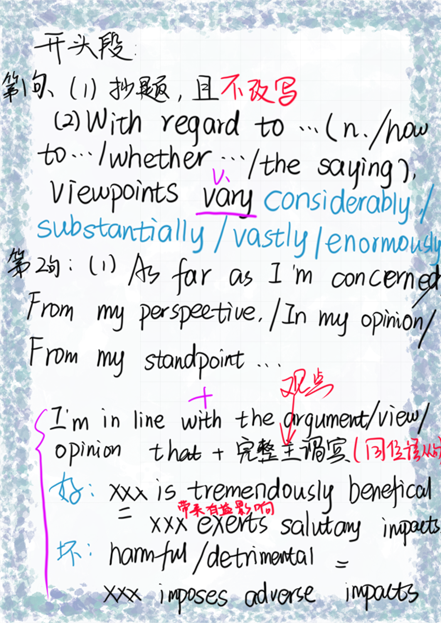 开头段:
第1句、(1) 抄题, 且不改写
(2) With regard to …(n./how
to…/whether …/the saying),
v.
viewpoints vary considerably/
substantially/vastly/enormously
第2句: (1) As far as I'm concerned
From my perspeetive,/In my opinion/
From my standpoint …
+
观点
I'm in line with the argument/view/
opinion that + 完整主谓宾(同位语从句
好: xxx is tremendously benefical
带来有益影响
= xxx exerts salutary impacts
坏: harmful/detrimental =
xxx imposes adverse impacts